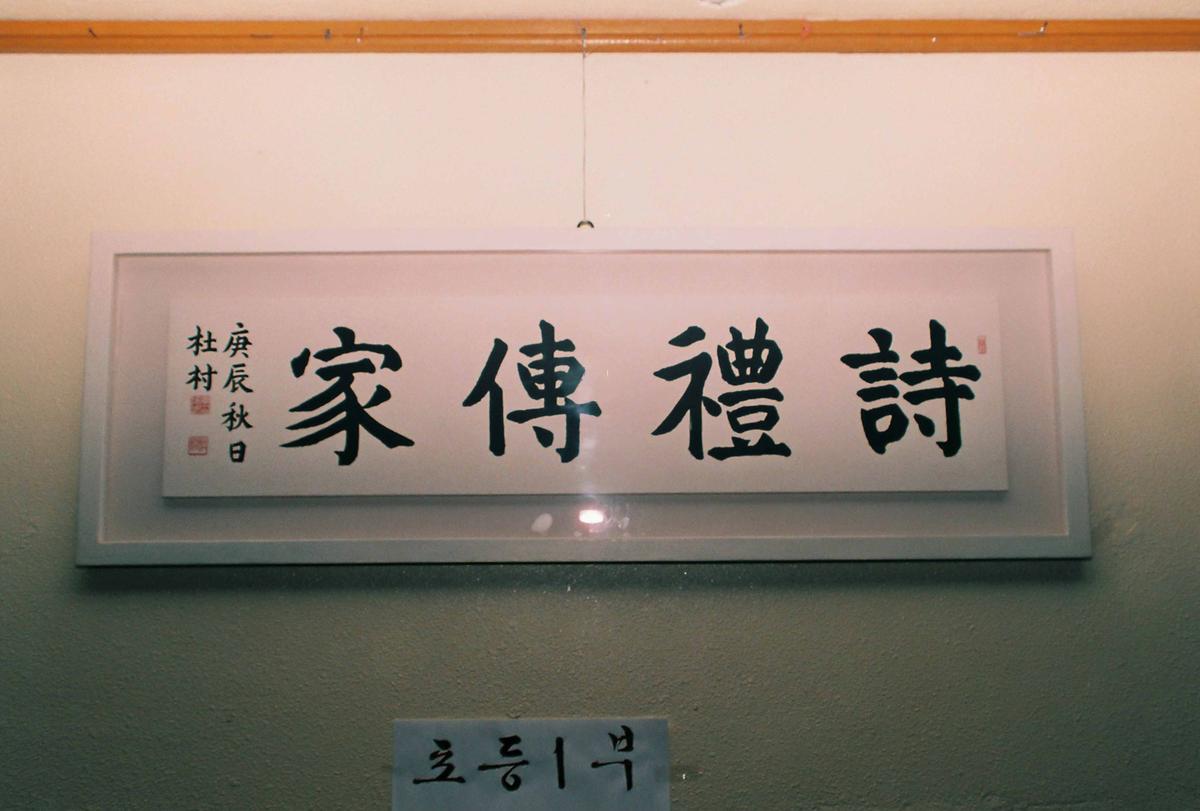 詩禮傳家
庚辰秋日
杜村
초등1부